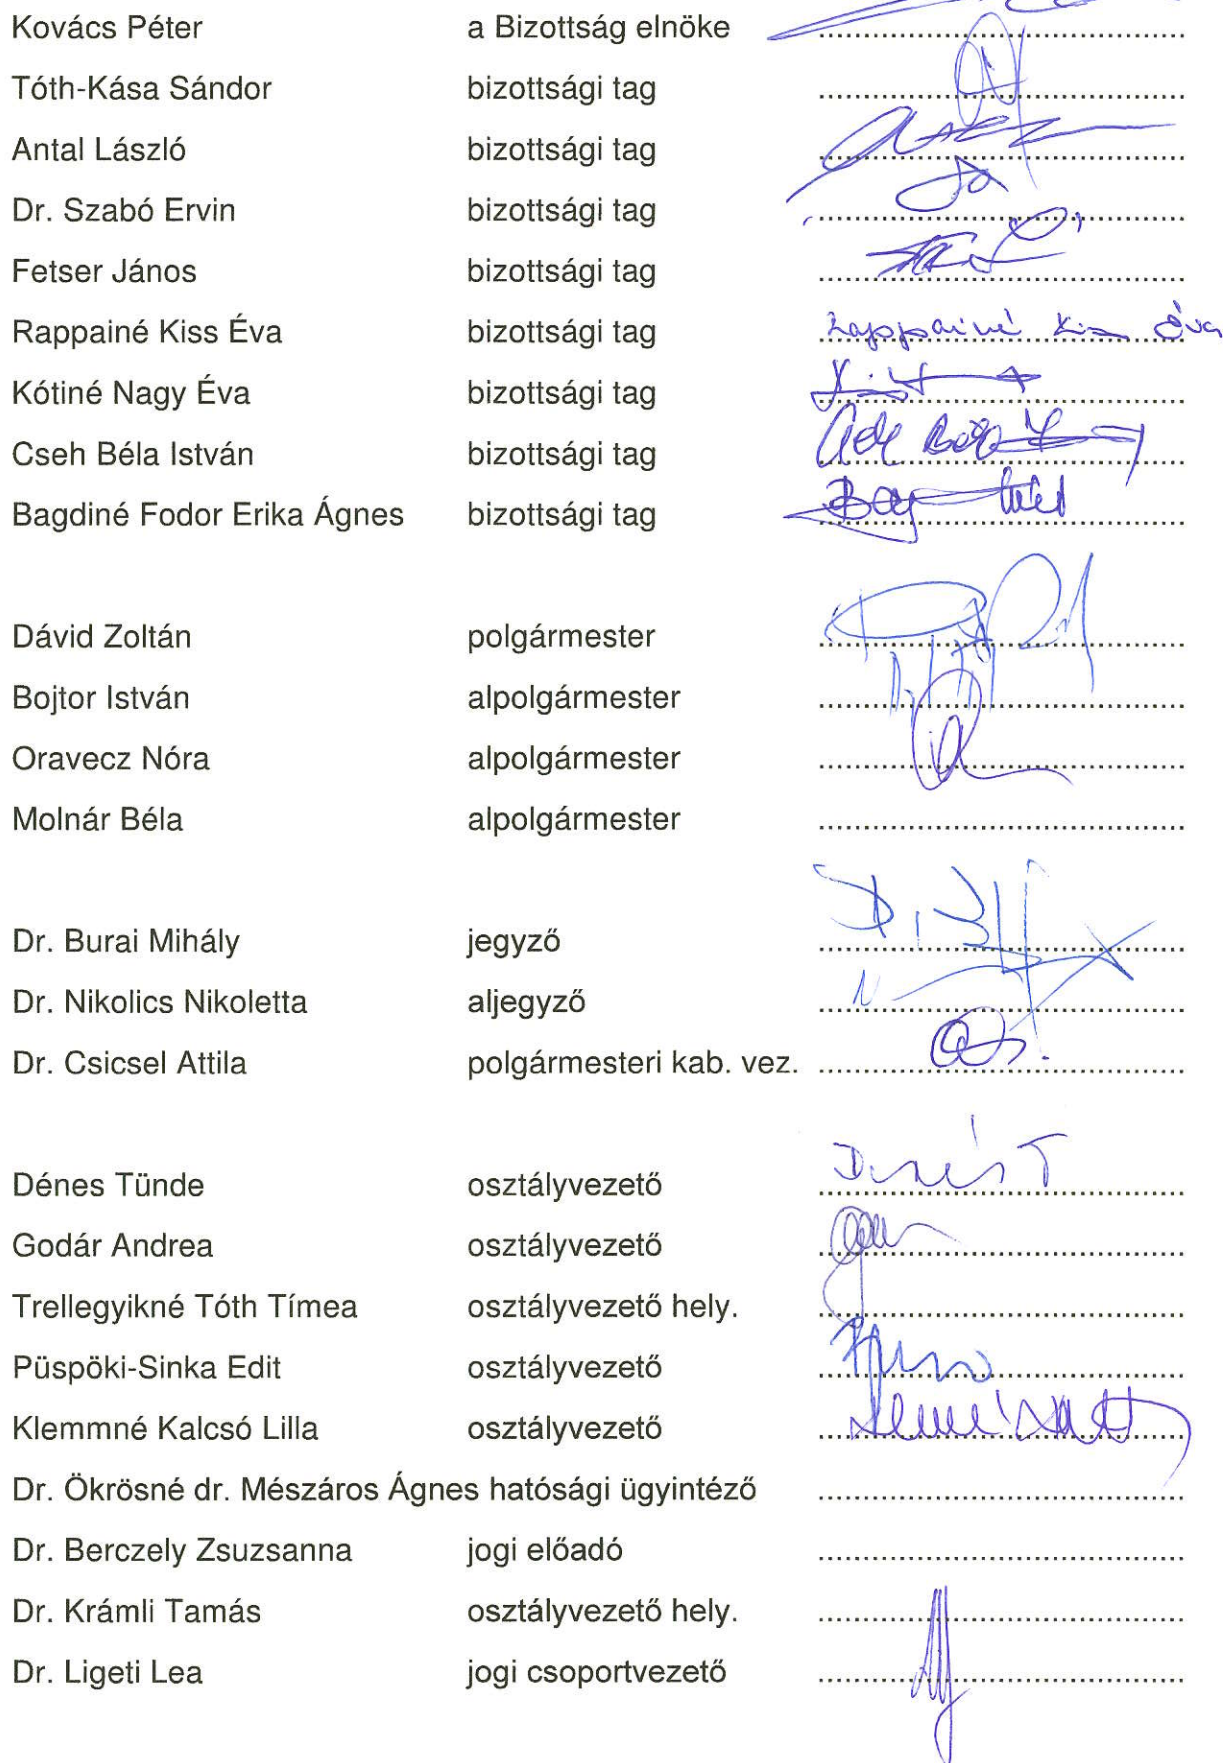 Kovács Péter a Bizottság elnöke ........................................
Tóth-Kása Sándor bizottsági tag ........................................
Antal László bizottsági tag ........................................
Dr. Szabó Ervin bizottsági tag ........................................
Fetser János bizottsági tag ........................................
Rappainé Kiss Éva bizottsági tag Rappainé Kiss Éva
Kótiné Nagy Éva bizottsági tag ........................................
Cseh Béla István bizottsági tag ........................................
Bagdiné Fodor Erika Ágnes bizottsági tag ........................................
Dávid Zoltán polgármester ........................................
Bojtor István alpolgármester ........................................
Oravecz Nóra alpolgármester ........................................
Molnár Béla alpolgármester ........................................
Dr. Burai Mihály jegyző ........................................
Dr. Nikolics Nikoletta aljegyző ........................................
Dr. Csicsel Attila polgármesteri kab. vez. ........................................
Dénes Tünde osztályvezető ........................................
Godár Andrea osztályvezető ........................................
Trellegyikné Tóth Tímea osztályvezető hely. ........................................
Püspöki-Sinka Edit osztályvezető ........................................
Klemmné Kalcsó Lilla osztályvezető ........................................
Dr. Ökrösné dr. Mészáros Ágnes hatósági ügyintéző ........................................
Dr. Berczely Zsuzsanna jogi előadó ........................................
Dr. Krámli Tamás osztályvezető hely. ........................................
Dr. Ligeti Lea jogi csoportvezető ........................................